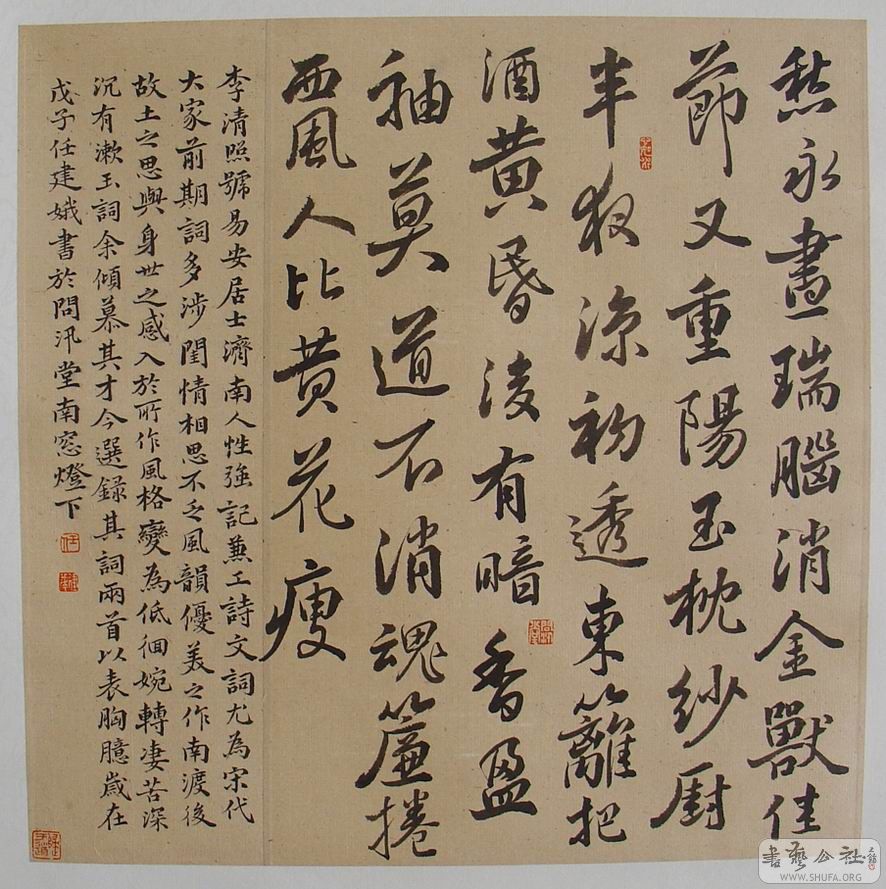 愁永晝瑞腦消金獸佳
節又重陽玉枕紗厨
半夜涼初透東籬把
酒黄昏後有暗香盈
袖莫道不消魂簾捲
西風人比黄花瘦
李清照號易安居士濟南人性強記兼工詩文詞尤為宋代
大家前期詞多涉閨情相思不乏風韻優美之作南渡後
故土之思與身世之感入於所作風格變為低徊婉轉凄苦深
沉有漱玉詞余傾慕其才今選錄其詞兩首以表胸臆歲在
戊子任建娥書於問汛堂南窓燈下
書藝公社
WWW.SHUFA.ORG